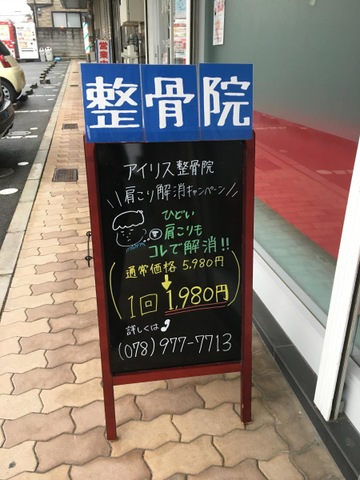 整骨院
アイリス整骨院
\\肩こり解消キャンペーン//
ひどい
肩こりも
コレで解消!!
通常価格 5,980円
↓
1回 1,980円
詳しくは
(078)977-7713
営業中